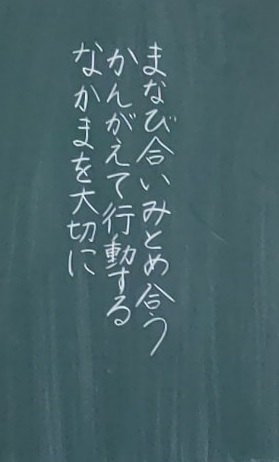 まなび合いみとめ合う
かんがえて行動する
なかまを大切に